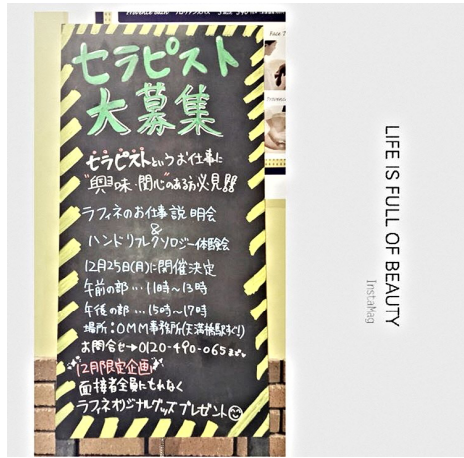 セラピスト
大募集
セラピストというお仕事に
"興味・関心"のある方必見!!
ラフィネのお仕事説明会
&
ハンドリフレクソロジー体験会
12月25日(月)に開催決定
午前の部…11時〜13時
午後の部…15時〜17時
場所:OMM事務所(天満橋駅すぐ!)
お問合せ→0120-490-065まで
12月限定企画
面接者全員にもれなく
ラフィネオリジナルグッズプレゼント
LIFE IS FULL OF BEAUTY
InstaMag